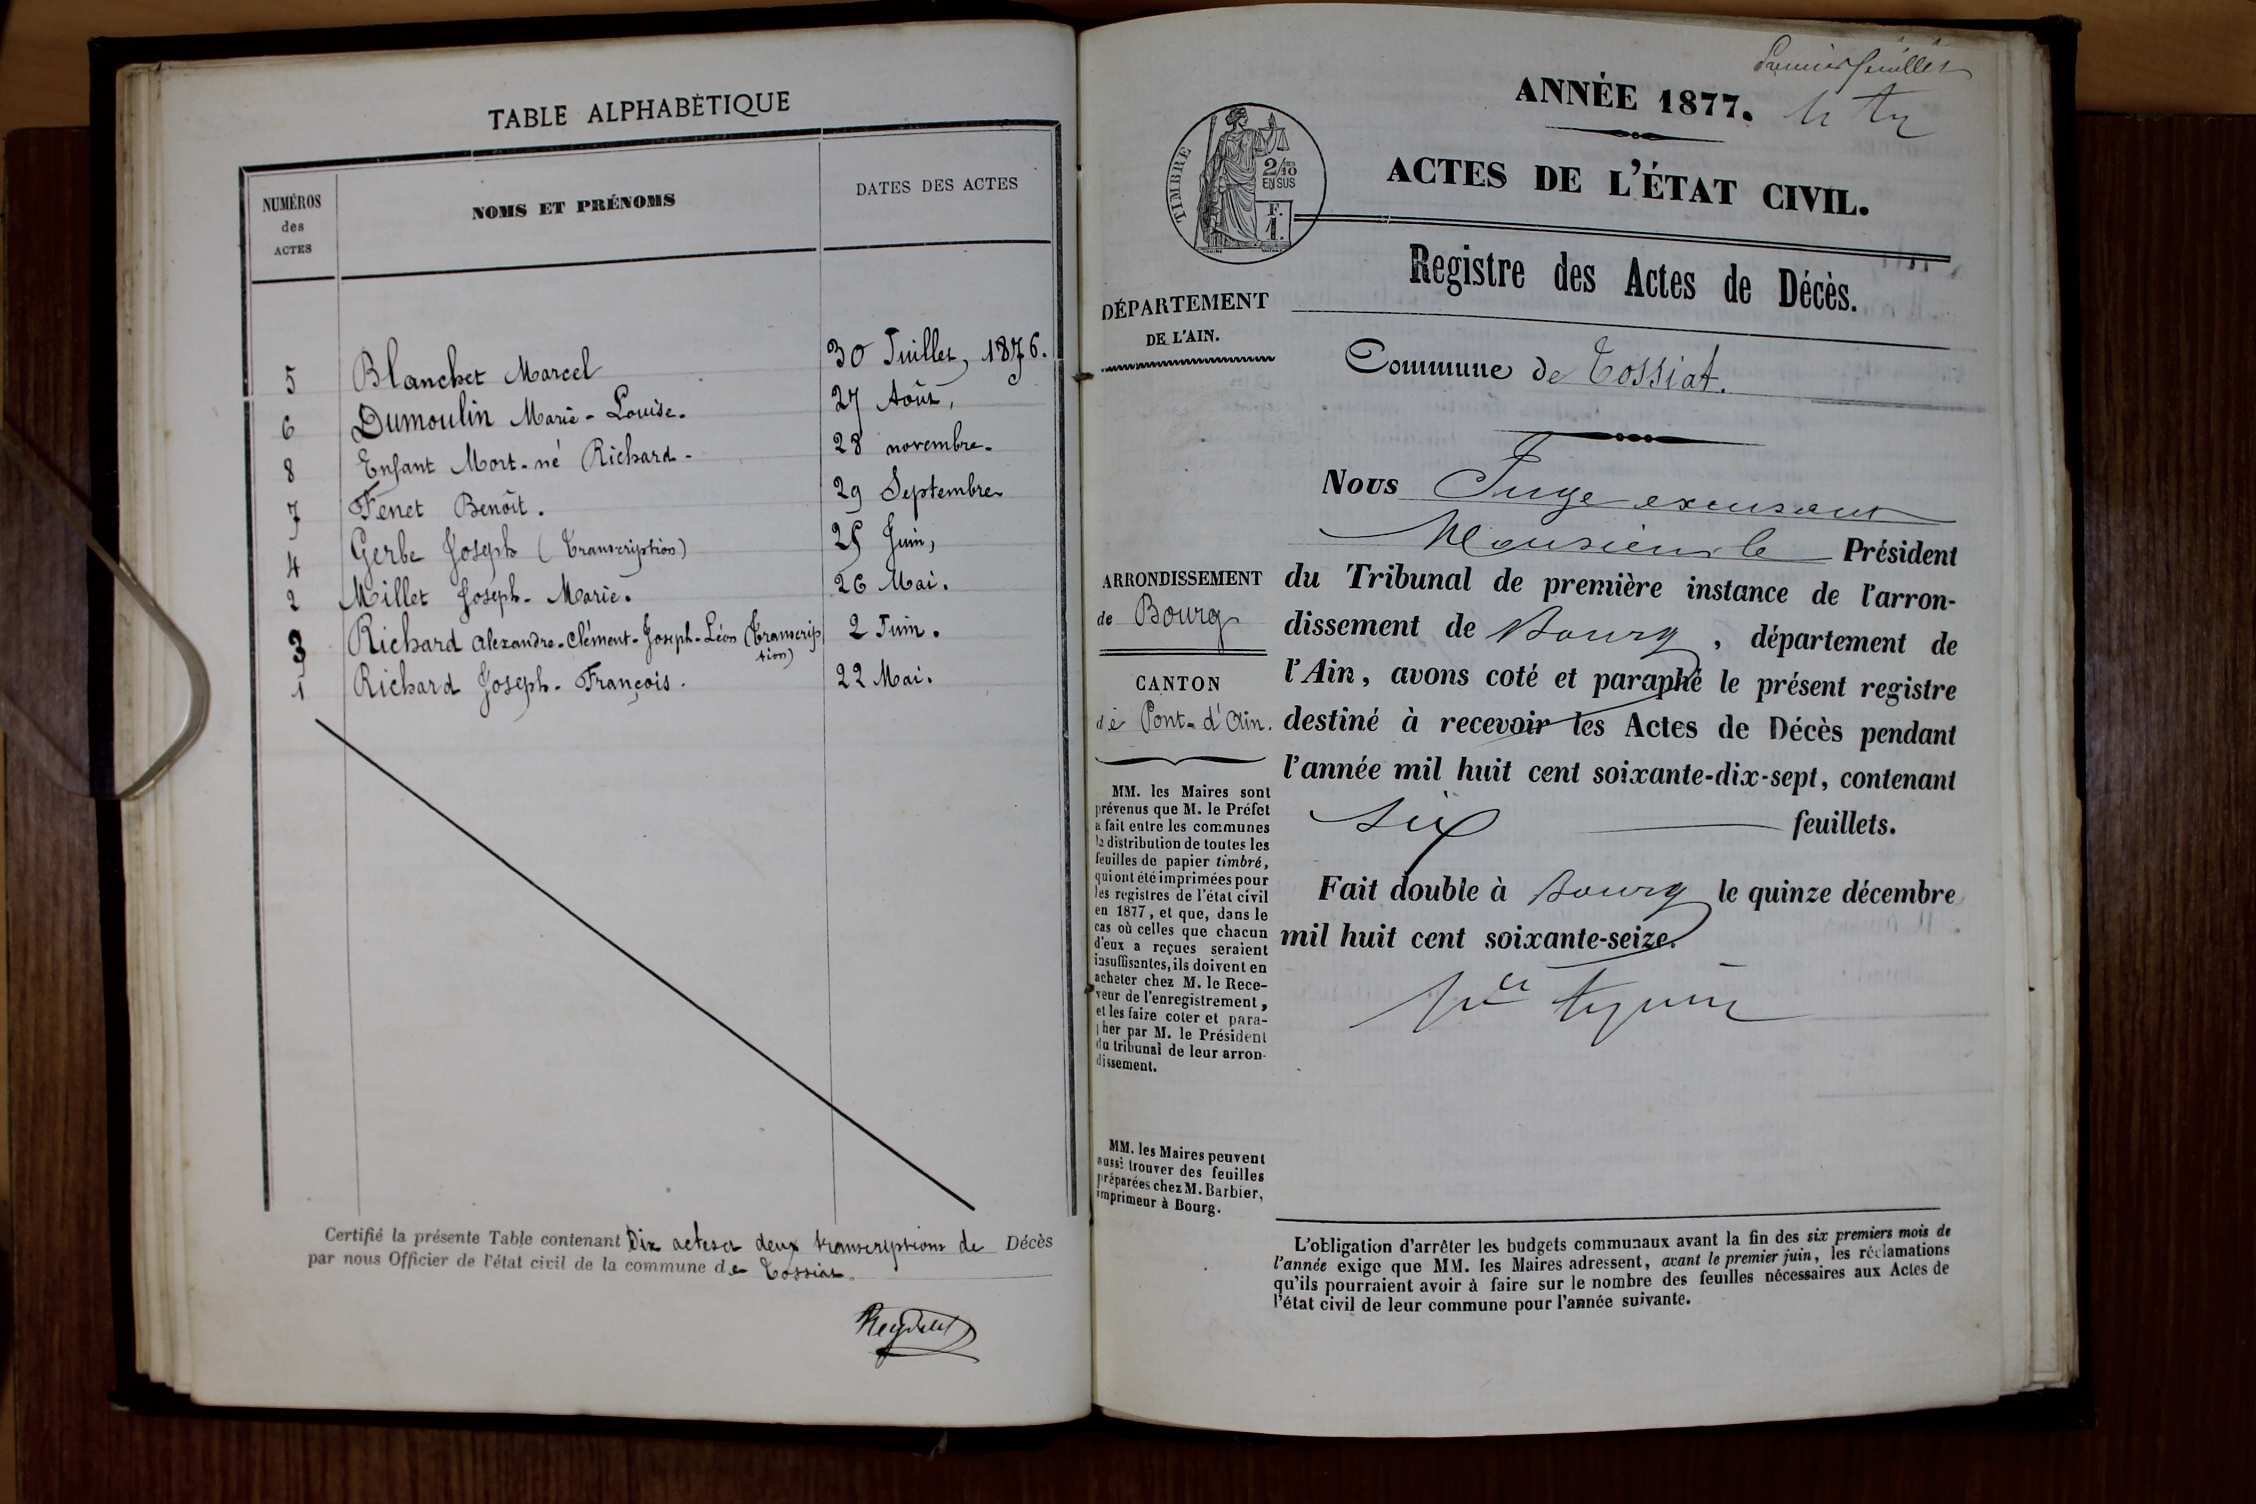 TABLE ALPHABÉTIQUE
NUMÉROS des ACTES
NOMS ET PRÉNOMS
DATES DES ACTES
5 Blanchet Marcel 30 Juillet, 1876.
6 Dumoulin Marie-Louise. 27 Août,
8 Enfant Mort-né Richard - 28 novembre.
7 Fenet Benoît. 29 Septembre
4 Gerbe Joseph (Transcription) 25 Juin,
2 Millet Joseph-Marie. 26 Mai.
3 Richard Alexandre-Clément-Joseph-Léon (Transcrip 2 Juin.
tion)
1 Richard Joseph-François. 22 Mai.
Certifié la présente Table contenant Dix actes et deux transcriptions de Décès
par nous Officier de l'état civil de la commune de Tossiat.
Premier feuillet
ANNÉE 1877.
ACTES DE L'ÉTAT CIVIL.
TIMBRE
2/10 EN SUS
F. 1.
Registre des Actes de Décès.
DÉPARTEMENT
DE L'AIN.
Commune de Tossiat.
Nous Juge excusant
Monsieur le Président
du Tribunal de première instance de l'arron-
dissement de Bourg, département de
l'Ain, avons coté et paraphé le présent registre
destiné à recevoir les Actes de Décès pendant
l'année mil huit cent soixante-dix-sept, contenant
six feuillets.
Fait double à Bourg le quinze décembre
mil huit cent soixante-seize.
ARRONDISSEMENT
de Bourg
CANTON
de Pont-d'Ain.
MM. les Maires sont
prévenus que M. le Préfet
a fait entre les communes
la distribution de toutes les
feuilles de papier timbré,
qui ont été imprimées pour
les registres de l'état civil
en 1877, et que, dans le
cas où celles que chacun
d'eux a reçues seraient
insuffisantes, ils doivent en
acheter chez M. le Rece-
veur de l'enregistrement,
et les faire coter et para-
pher par M. le Président
du tribunal de leur arron-
dissement.
MM. les Maires peuvent
aussi trouver des feuilles
préparées chez M. Barbier,
imprimeur à Bourg.
L'obligation d'arrêter les budgets communaux avant la fin des six premiers mois de
l'année exige que MM. les Maires adressent, avant le premier juin, les réclamations
qu'ils pourraient avoir à faire sur le nombre des feuilles nécessaires aux Actes de
l'état civil de leur commune pour l'année suivante.